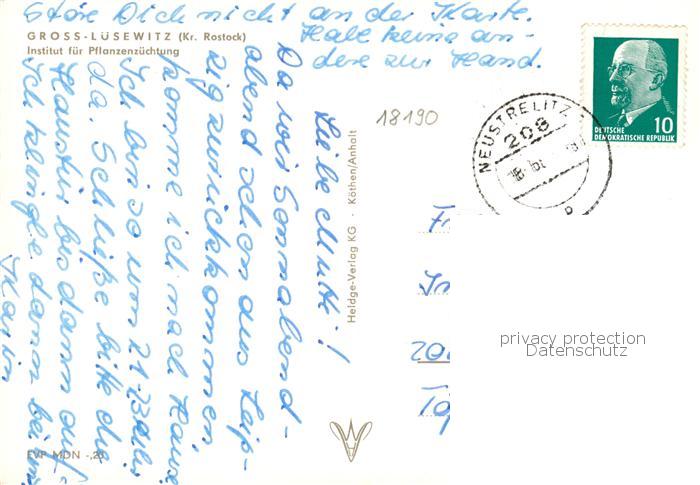 Störe Dich nicht an der Karte.
Habe keine an-
dere zur Hand.
GROSS-LÜSEWITZ (Kr. Rostock)
Institut für Pflanzenzüchtung
Liebe Mutti!
Da wir Sonnabend-
abend schon aus Leip-
zig zurückkommen,
komme ich nach Hause
Ich bin so um 21-23 Uhr
da. Schließe bitte die
Haustür bis dann auf.
Ich klingle dann bei uns
Karin
18190
Heldge-Verlag KG · Köthen/Anhalt
EVP MDN -,20
NEUSTRELITZ
208
DEUTSCHE
DEMOKRATISCHE REPUBLIK
10
privacy protection
Datenschutz